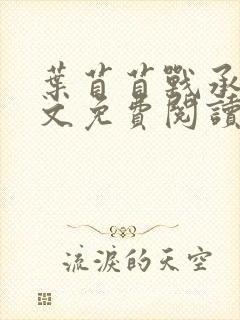 葉苜苜戰承
文免費閱讀
流淚的天空